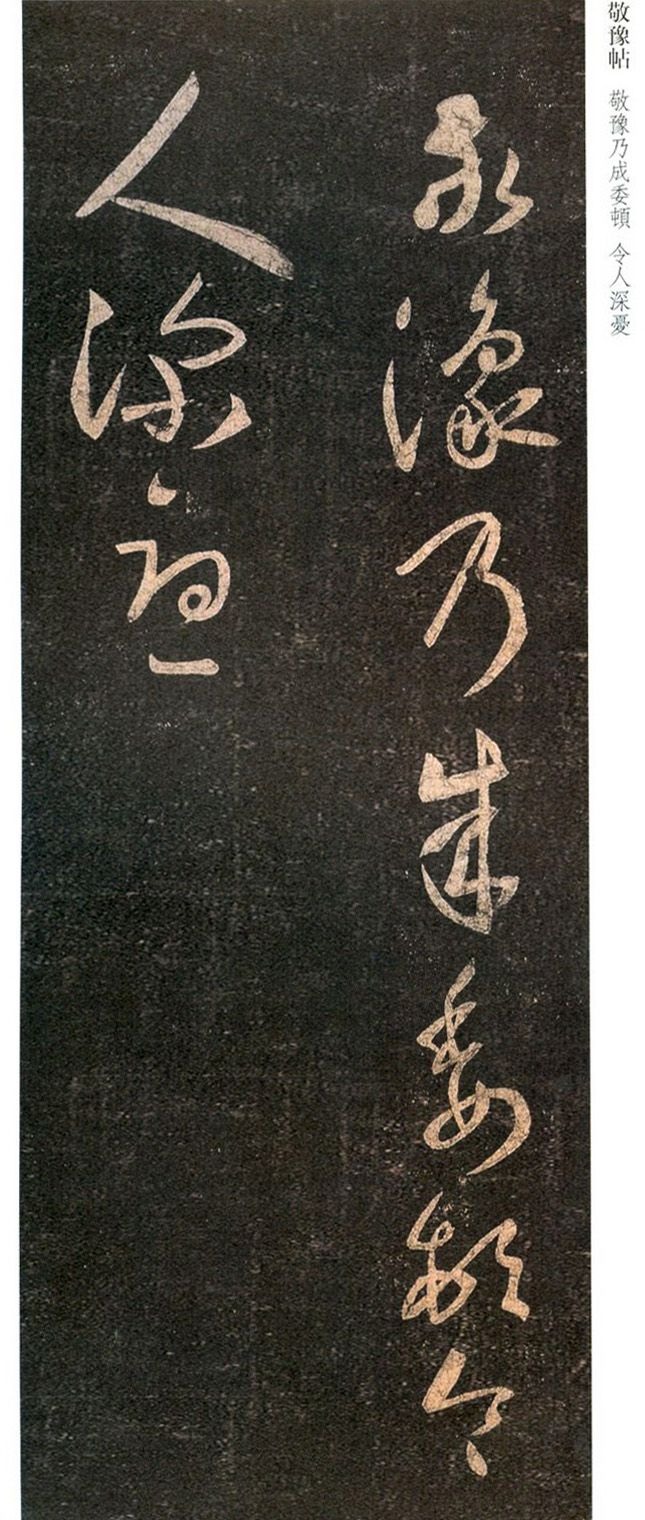 敬豫帖 敬豫乃成委頓 令人深憂
敬豫乃成委頓令
人深憂